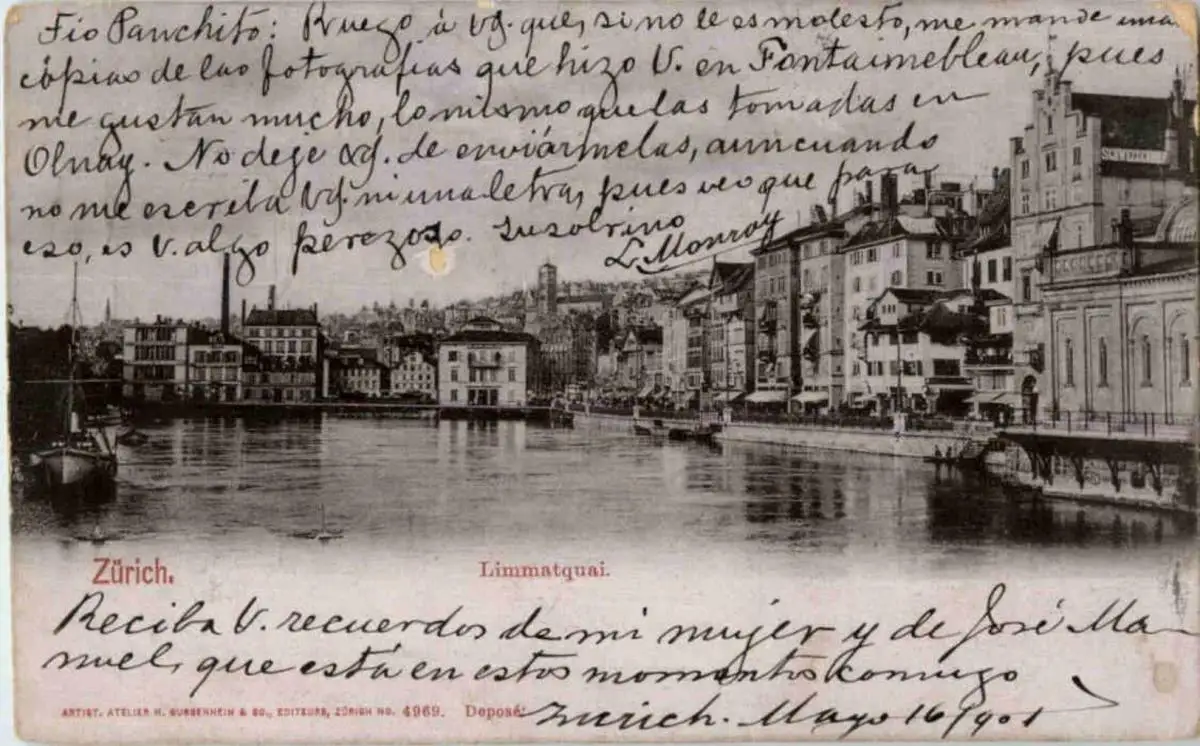 Tío Panchito: Ruego á Vd. que, si no le es molesto, me mande unas
cópias de las fotografías que hizo V. en Fontaimebleau, pues
me gustan mucho, lo mismo que las tomadas en
Olnay. No deje Vd. de enviármelas, aun cuando
no me escriba Vd. ni una letra, pues veo que para
eso, es V. algo perezoso. Su sobrino
L. Monroy
Zürich.
Limmatquai.
Reciba V. recuerdos de mi mujer y de José Ma-
nuel, que está en estos momentos conmigo
ARTIST. ATELIER H. GUGGENHEIM & CO., EDITEURS, ZÜRICH NO. 4969. Deposé.
Zurich. Mayo 16/901